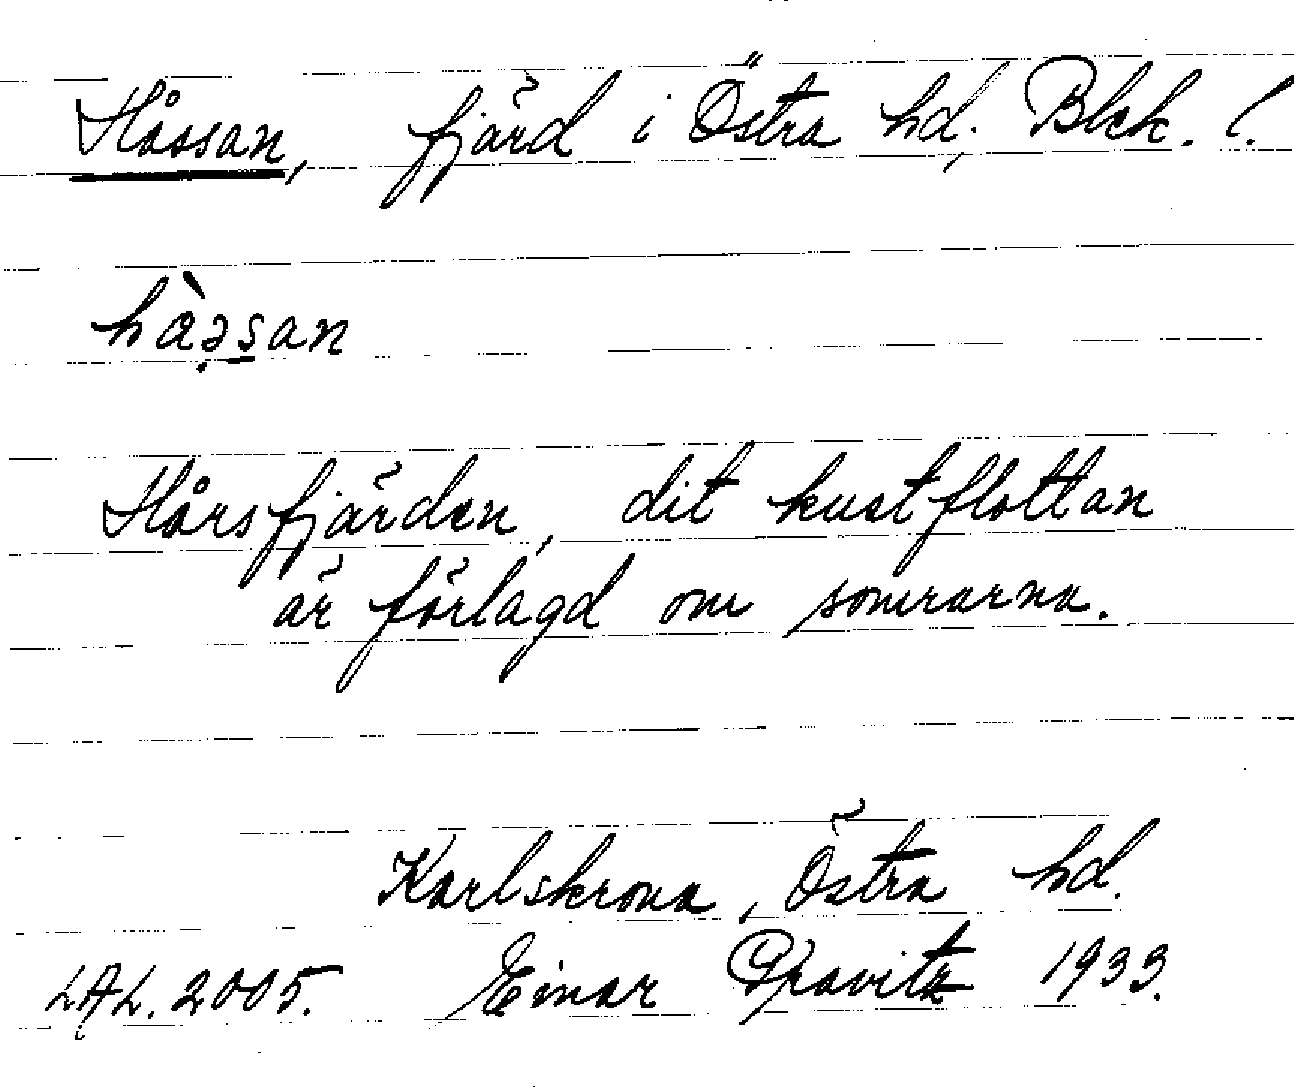 Håssan, fjärd i Östra hd, Blek. l.
hàəsan
Hårsfjärden, dit kustflottan
är förlagd om somrarna.
Karlskrona, Östra hd.
LAL. 2005. Einar 1933.